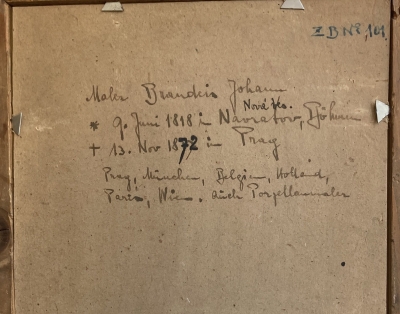 II B No 8, 101.
Maler Brandeis Johann
Nová Ves.
* 9. Juni 1818 in Navratov, Böhmen
† 13. Nov 1872 in Prag
Prag, München, Belgien, Holland,
Paris, Wien. auch Porzellanmaler